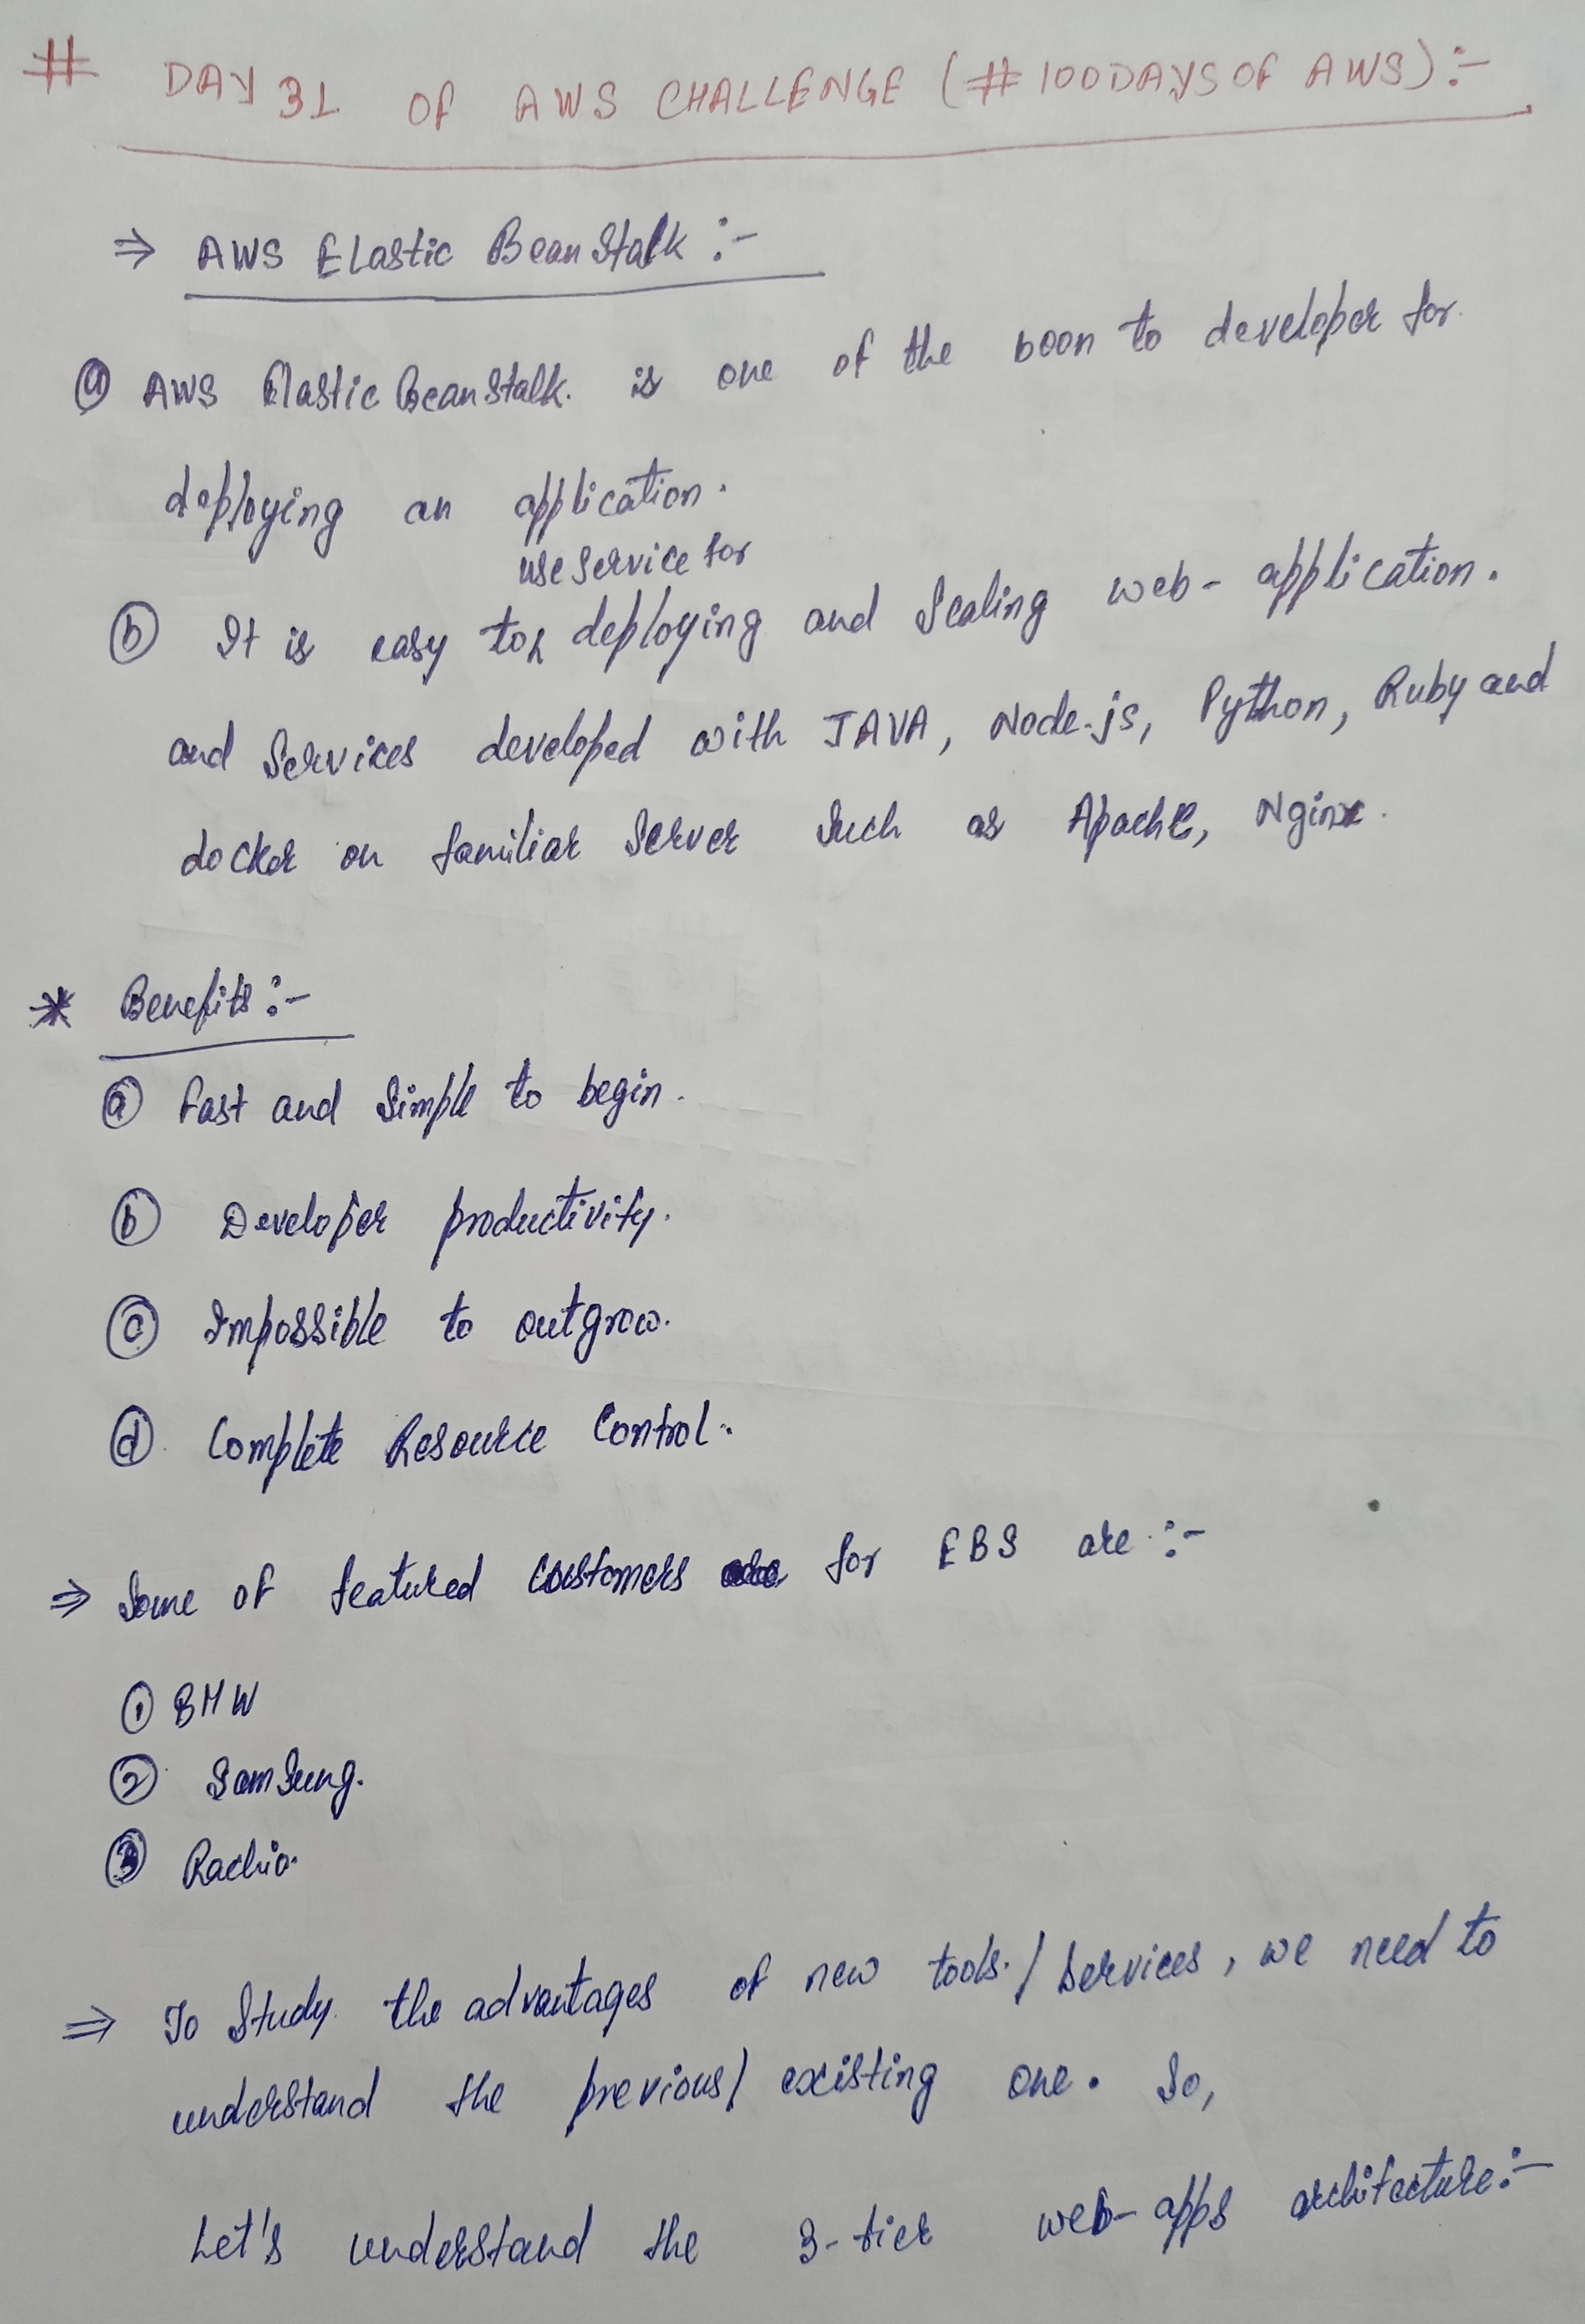 # DAY 31 OF AWS CHALLENGE (#100DAYSOF AWS):-
⇒ AWS Elastic BeanStalk :-
ⓐ AWS Elastic BeanStalk. is one of the boon to developer for
deploying an application.
use service for
ⓑ It is easy to deploying and Scaling web-application.
and Services developed with JAVA, Node.js, Python, Ruby and
docker on familiar Server Such as Apache, Nginx.
* Benefits :-
ⓐ Fast and Simple to begin.
ⓑ Developer productivity.
ⓒ Impossible to outgrow.
ⓓ Complete Resource Control.
⇒ Some of featured Customers for EBS are :-
① BMW
② SamSung.
③ Rachio.
⇒ To Study the advantages of new tools./services, we need to
understand the previous/existing one. So,
Let's understand the 3-tier web-apps architecture:-